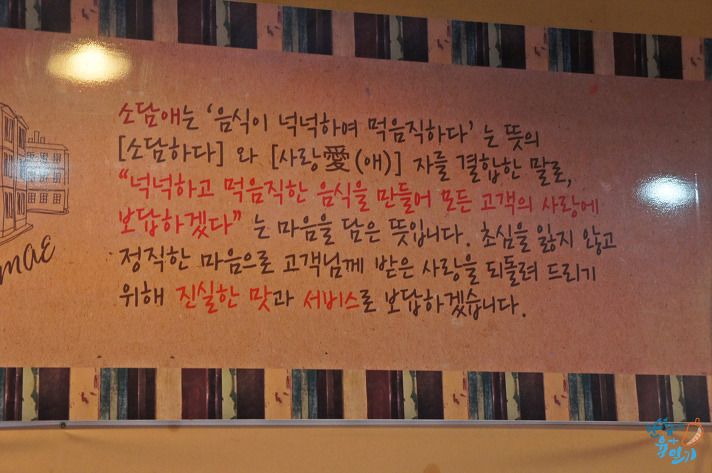 소담애는 '음식이 넉넉하여 먹음직하다' 는 뜻의
[소담하다] 와 [사랑愛(애)] 자를 결합한 말로,
"넉넉하고 먹음직한 음식을 만들어 모든 고객의 사랑에
보답하겠다" 는 마음을 담은 뜻입니다. 초심을 잃지 않고
정직한 마음으로 고객님께 받은 사랑을 되돌려 드리기
위해 진실한 맛과 서비스로 보답하겠습니다.